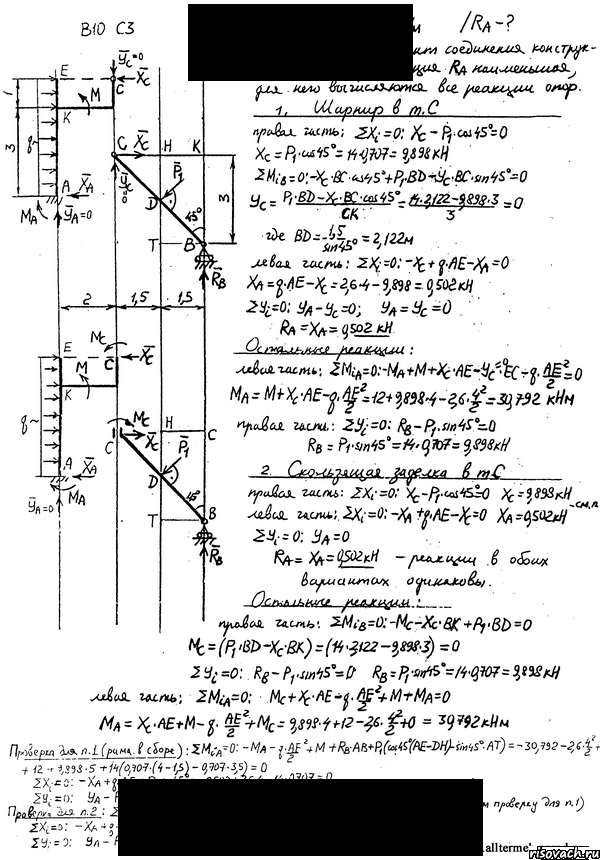 В10 С3
м /RA-?
ит соединения конструк-
ция RA наименьшая,
для него вычисляются все реакции опор.
1. Шарнир в т.С
правая часть: ΣXi=0: XC-P1·cos45°=0
XC=P1·cos45°=14·0,707=9,898кН
ΣMiB=0:-XC·BC·cos45°+P1·BD-YC·BC·sin45°=0
YC= P1·BD-XC·BC·cos45° / CK = 14·2,122-9,898·3 / 3 =0
где BD= 1,5 / sin45° =2,122м
левая часть: ΣXi=0:-XC+q·AE-XA=0
XA=q·AE-XC=2,6·4-9,898=0,502кН
ΣYi=0: YA-YC=0; YA=YC=0
RA=XA=0,502кН
Остальные реакции:
левая часть: ΣMiA=0:-MA+M+XC·AE-YC·EC-q·AE²/2=0
MA=M+XC·AE-q·AE²/2=12+9,898·4-2,6·4²/2=30,792 кНм
правая часть: ΣYi=0: RB-P1·sin45°=0
RB=P1·sin45°=14·0,707=9,898кН
2. Скользящая заделка в т.С
правая часть: ΣXi=0: XC-P1·cos45°=0 XC=9,898кН
левая часть: ΣXi=0: -XA+q·AE-XC=0 XA=0,502кН -см.п
ΣYi=0: YA=0
RA=XA=0,502кН - реакции в обоих
вариантах одинаковы.
Остальные реакции:
правая часть: ΣMiB=0:-MC-XC·BK+P1·BD=0
MC=(P1·BD-XC·BK)=(14·2,122-9,898·3)=0
ΣYi=0: RB-P1·sin45°=0 RB=P1·sin45°=14·0,707=9,898кН
левая часть: ΣMiA=0: MC+XC·AE-q·AE²/2+M+MA=0
MA=XC·AE+M-q·AE²/2+MC=9,898·4+12-2,6·4²/2+0=30,792кНм
Проверка для п.1 (рама в сборе): ΣMiA=0: -MA-q·AE²/2+M+RB·AB+P1(cos45°(AE-DH)-sin45°·AT)=-30,792-2,6·4²/2+
+12+9,898·5+14(0,707·(4-1,5)-0,707·3,5)=0
ΣXi=0: -XA+q
ΣYi=0: YA-
м проверку для п.1)
Проверка для п.2: Σ
ΣXi=0: -XA+q
ΣYi=0: YA-
.allterme
risovach.ru
E
YC=0
XC
C
M
K
1
3
q
A
XA
MA
YA=0
C
XC
H
K
YC=0
P1
D
45°
3
T
B
RB
2
1,5
1,5
E
MC
XC
C
M
K
q
MC
XC
C
H
C
P1
D
45°
A
XA
MA
YA=0
T
B
RB